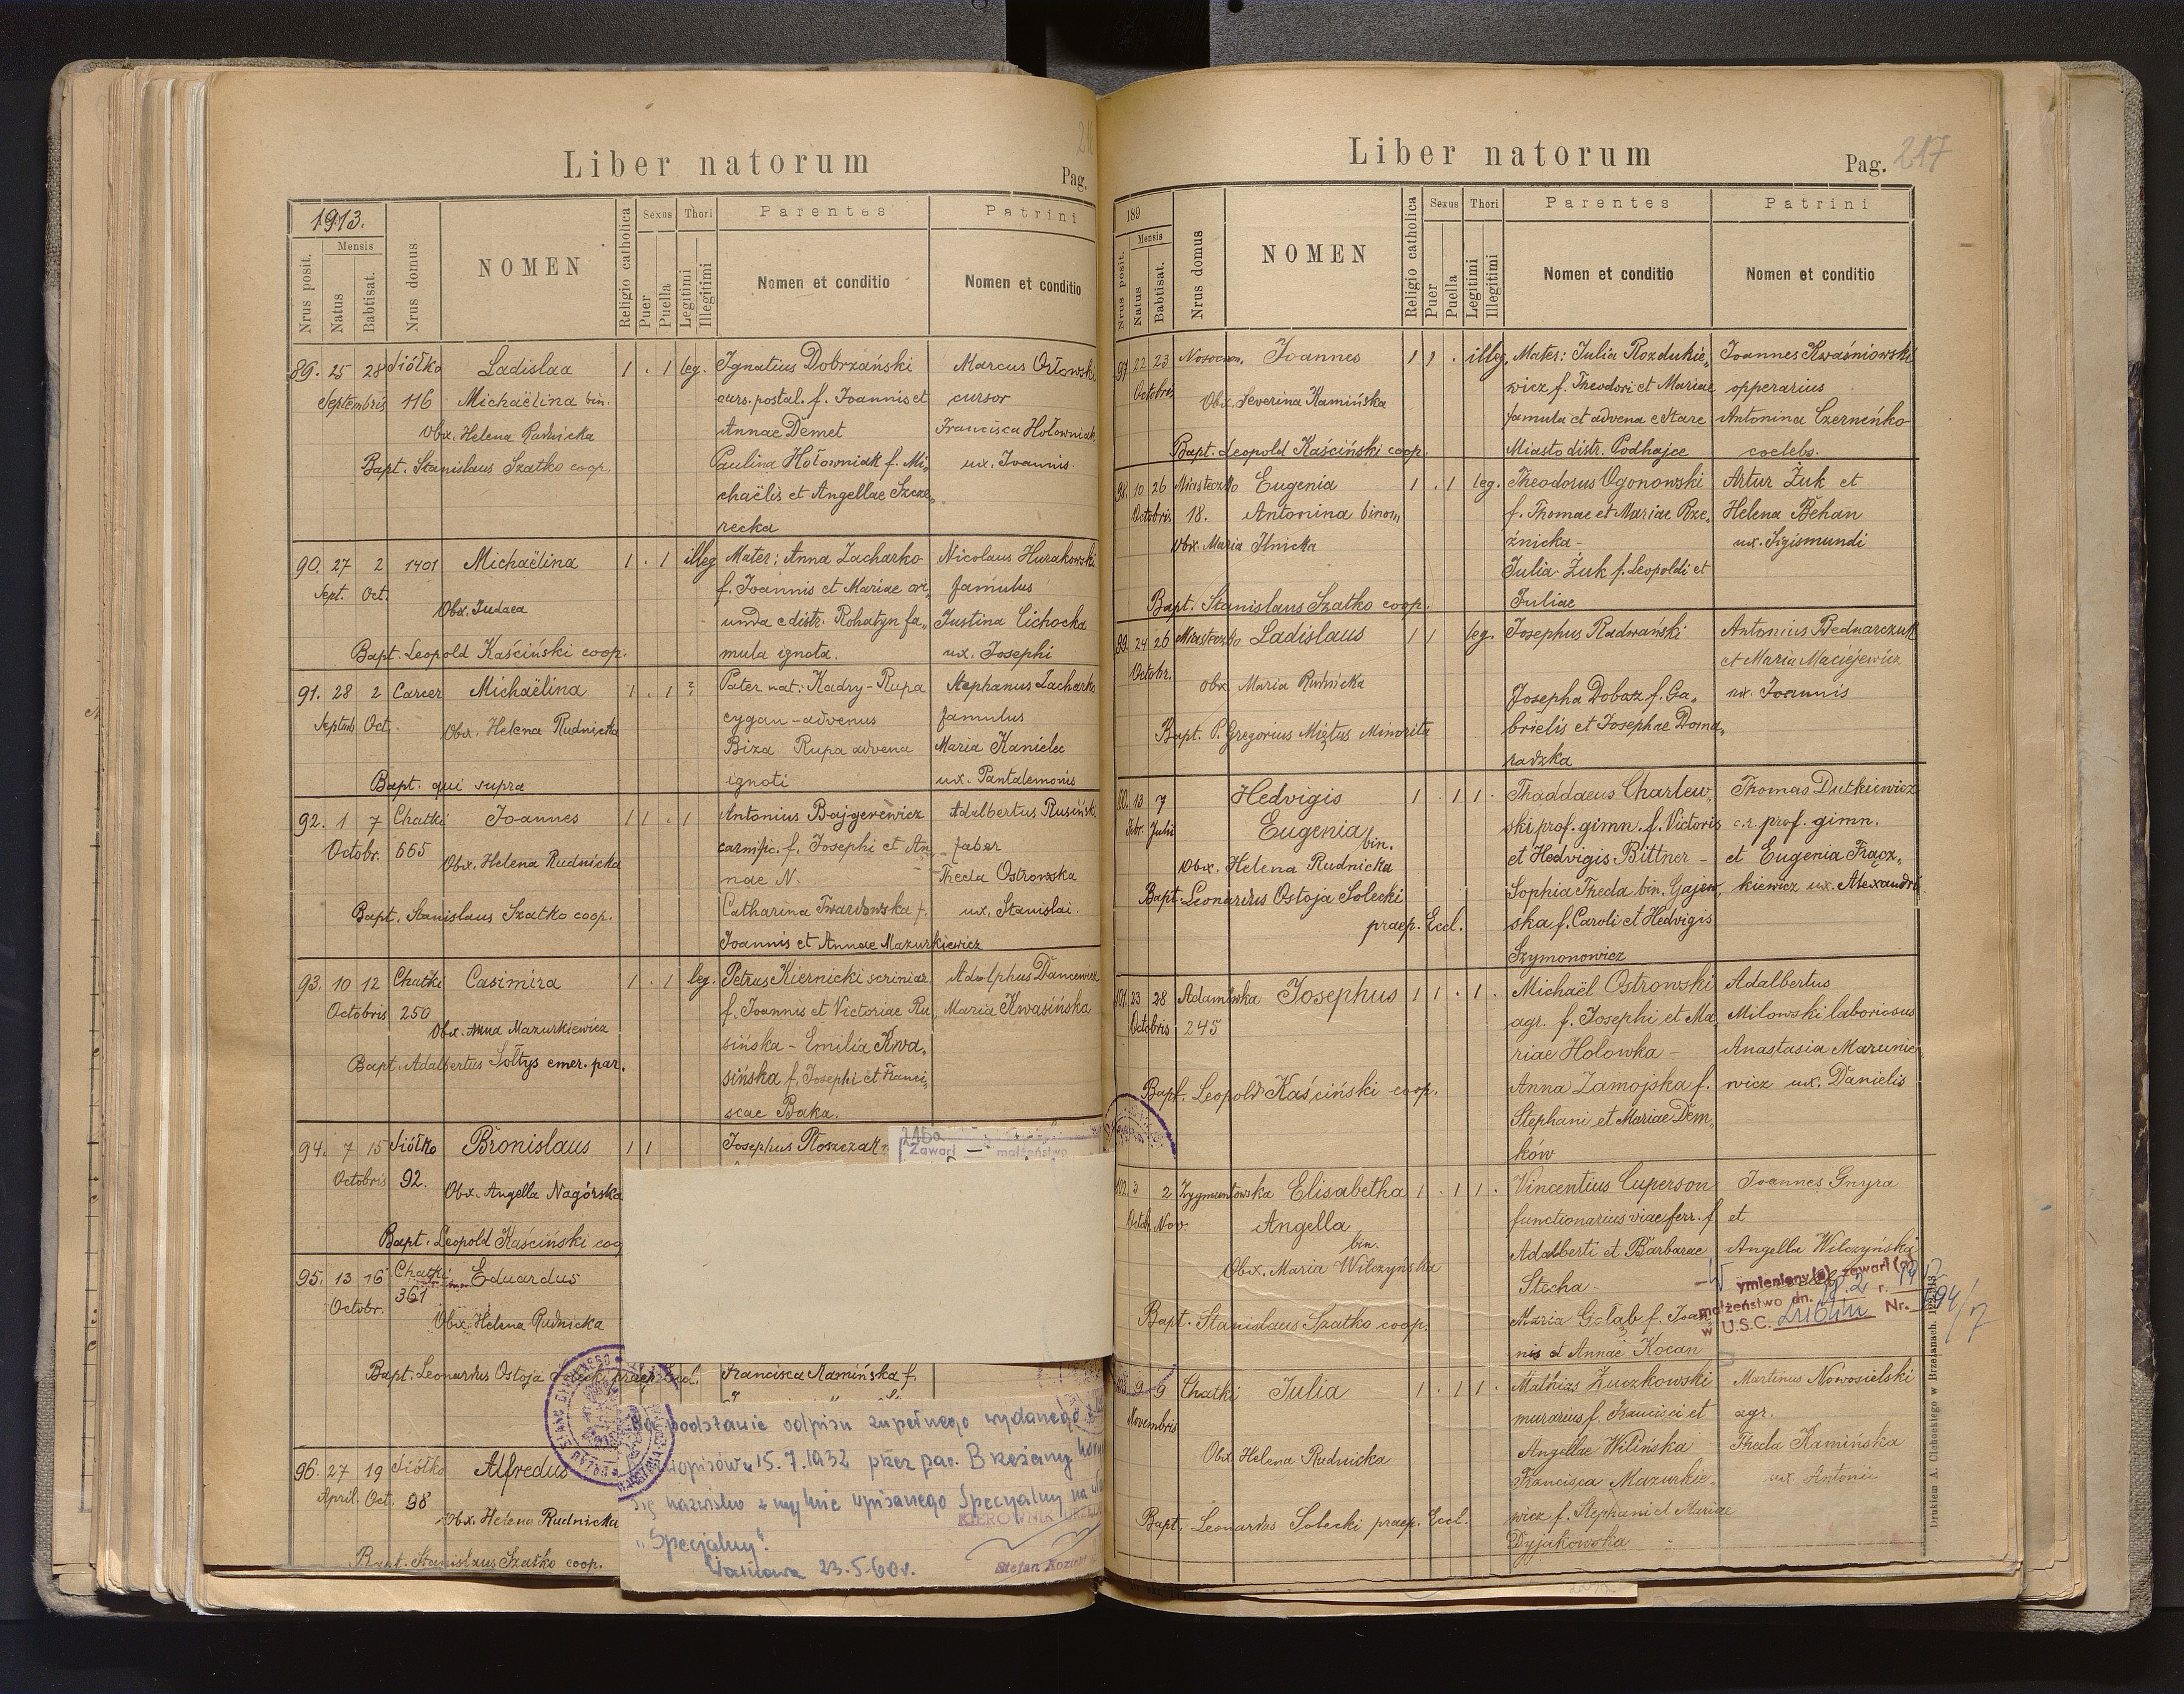 Liber natorum
Pag.
1913.
Nrus posit.
Mensis
Natus
Babtisat.
Nrus domus
NOMEN
Religio catholica
Sexus
Puer
Puella
Thori
Legitimi
Illegitimi
Parentes
Nomen et conditio
Patrini
Nomen et conditio
89. 25 28 Siółko Ladislaa 1 . 1 leg. Ignatius Dobrzański Marcus Orłowski
Septembris 116 Michaëlina bin. curs. postal. f. Joannis et cursor
Obx. Helena Rudnicka Annae Demet Francisca Hołowniak
Bapt. Stanislaus Szatko coop. Paulina Hołowniak f. Mi, ux. Joannis.
chaëlis et Angellae Szcze,
recka
90. 27 2 1401 Michaëlina 1 . 1 illeg Mater: Anna Zacharko Nicolaus Hurakowski
Sept. Oct. f. Joannis et Mariae ori, famulus
Obx. Judaea unda e distr. Rohatyn fa, Justina Cichocka
Bapt. Leopold Kaściński coop. mula ignota. ux. Josephi
91. 28 2 Carcer Michaëlina 1 . 1 ? Pater nat: Kadry-Rupa Stephanus Zacharko
Septemb Oct. Obx. Helena Rudnicka cygan-advenus famulus
Biza Rupa advena Maria Kanielec
Bapt. qui supra ignoti ux. Pantalemonis
92. 1 7 Chatki Joannes 1 1 . 1 Antonius Bajgerewicz Adalbertus Rusiński
Octobr. 665 Obx. Helena Rudnicka carnific. f. Josephi et An, faber
nae N. Thecla Ostrowska
Bapt. Stanislaus Szatko coop. Catharina Twardowska f. ux. Stanislai.
Joannis et Annae Mazurkiewicz
93. 10 12 Chatki Casimira 1 . 1 leg. Petrus Kiernicki scriniar. Adolphus Dancewicz
Octobris 250 f. Joannis et Victoriae Ru, Maria Kwasińska
Obx. Anna Mazurkiewicz sińska - Emilia Kwa,
Bapt. Adalbertus Sołtys emer. par. sińska f. Josephi et Franci,
scae Baka.
94. 7 15 Siółko Bronislaus 1 1 Josephus Płoszczak
Zawarł małżeństwo
Octobris 92.
Obx. Angella Nagórska
Bapt. Leopold Kaściński coo
95. 13 16 Chatki Eduardus
Octobr. 361
Obx. Helena Rudnicka
Bapt. Leonardus Ostoja Solecki praep. Eccl. Francisca Kamińska f.
96. 27 19 Siółko Alfredus
April. Oct. 98
Obx. Helena Rudnicka
Bapt. Stanislaus Szatko coop.
Na podstawie odpisu zupełnego wydanego
15.7.1932 przez par. Brzeżany
się nazwisko z mylnie wpisanego Specyalny na
"Specjalny".
KIEROWNIK URZĘDU
Warszawa 23.5.60 r.
Stefan
Liber natorum
Pag. 217
189
Nrus posit.
Mensis
Natus
Babtisat.
Nrus domus
NOMEN
Religio catholica
Sexus
Puer
Puella
Thori
Legitimi
Illegitimi
Parentes
Nomen et conditio
Patrini
Nomen et conditio
97 22 23 Nosocom. Joannes 1 1 . illeg. Mater: Julia Rozdukie, Joannes Kwaśniowski
Octobris wicz f. Theodori et Mariae opperarius
Obx. Severina Kamińska famula et advena e Stare Antonina Czerneńko
Bapt. Leopold Kaściński coop. Miasto distr. Podhajce coelebs.
98. 10 26 Miasteczko Eugenia 1 . 1 leg. Theodorus Ogonowski Artur Żuk et
Octobris 18. Antonina binom, f. Thomae et Mariae Rze, Helena Behan
Obx. Maria Ilnicka źnicka - ux. Sigismundi
Julia Żuk f. Leopoldi et
Bapt. Stanislaus Szatko coop. Juliae
99. 24 26 Miasteczko Ladislaus 1 1 leg. Josephus Radwański Antonius Bednarczuk
Octobr. et Maria Maciejewicz
Obx. Maria Rudnicka Josepha Dobasz f. Ga, ux. Joannis
brielis et Josephae Doma,
Bapt. P. Gregorius Miętus Minorita
radzka
100. 13 7 Hedvigis 1 . 1 1 . Thaddaeus Charlew, Thomas Dutkiewicz
Febr. Julii Eugenia bin. ski prof. gimn. f. Victoris c.r. prof. gimn.
Obx. Helena Rudnicka et Hedvigis Bittner - et Eugenia Frącz,
Bapt. Leonardus Ostoja Solecki Sophia Thecla bin. Gajew, kiewicz ux. Alexandri
praep. Eccl. ska f. Caroli et Hedvigis
Szymonowicz
101. 23 28 Adamówka Josephus 1 1 . 1 . Michaël Ostrowski Adalbertus
Octobris 245 agr. f. Josephi et Ma, Milowski laboriosus
riae Holowka - Anastasia Marunie
Bapt. Leopold Kaściński coop. Anna Zamojska f. wicz ux. Danielis
Stephani et Mariae Dem,
ków
102. 3 2 Zygmuntowska Elisabetha 1 . 1 1 . Vincentius Cuperson Joannes Gnyra
Octob. Nov. Angella bin. functionarius viae ferr. f. et
Adalberti et Barbarae Angella Wilczyńska
Obx. Maria Wilczyńska Stecha -
Bapt. Stanislaus Szatko coop. Maria Gołab f. Joan,
nis et Annae Kocan
W ymieniony(a) zawarł(a)
małżeństwo dn. r.
w U.S.C. Lublin Nr.
103. 9 9 Chatki Julia 1 . 1 1 . Mathias Zuczkowski Martinus Nowosielski
Novembris murarius f. Francisci et agr.
Obx. Helena Rudnicka Angellae Wilińska Thecla Kamińska
Francisca Mazurkie, ux. Antonii
Bapt. Leonardus Solecki praep. Eccl. wicz f. Stephani et Mariae
Dyjakowska
Drukiem A. Cichockiego w Brzeżanach.